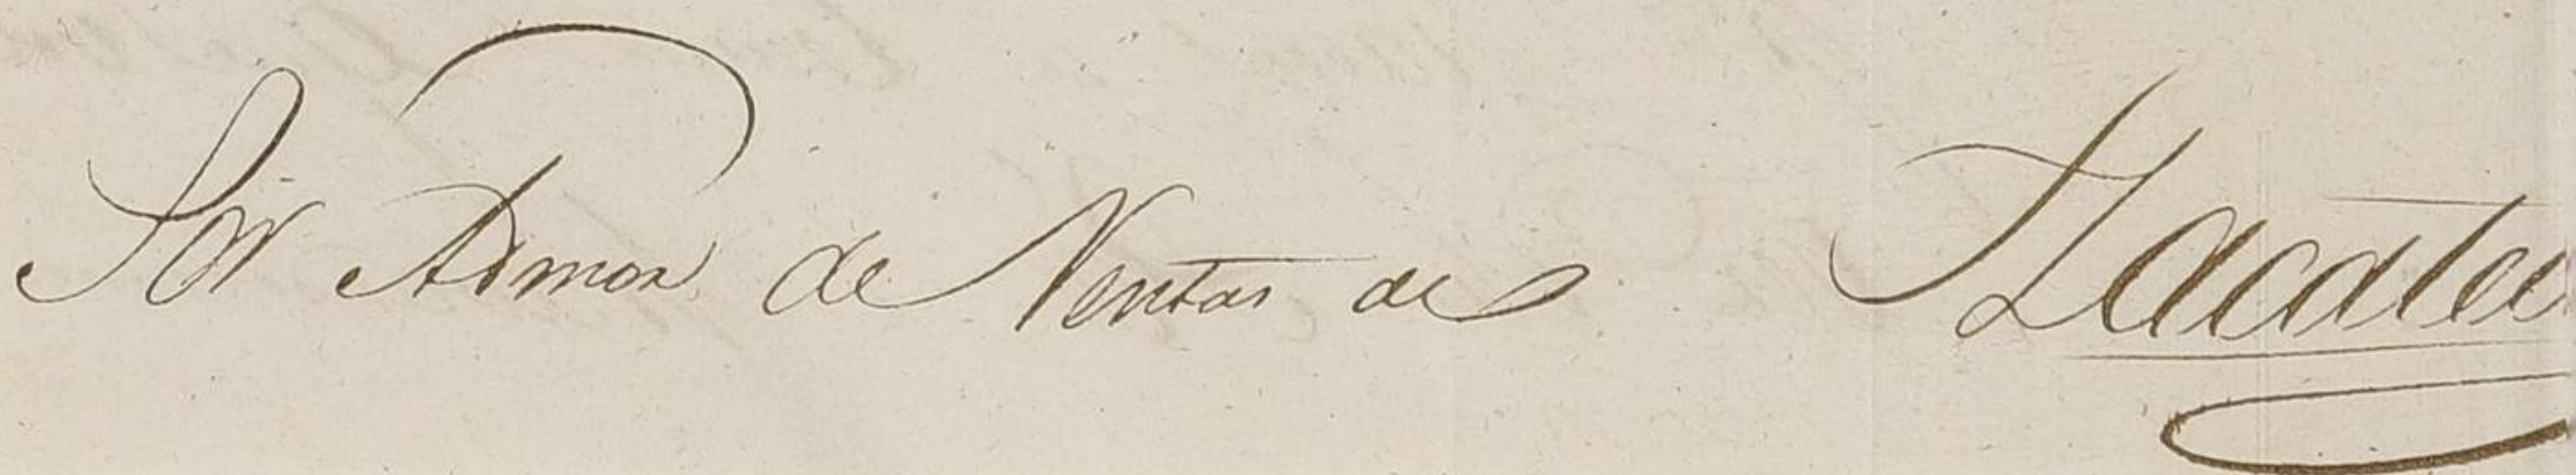 Sor Admor de Rentas de Zacatec